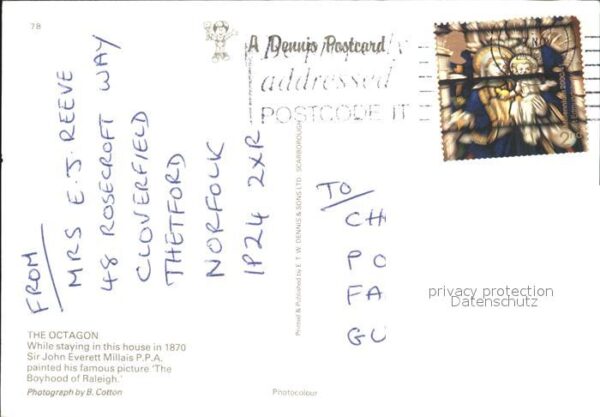 78
A Dennis Postcard
addressed
POSTCODE IT
FROM
MRS E. J. REEVE
48 ROSECROFT WAY
CLOVERFIELD
THETFORD
NORFOLK
IP24 2XR
TO
CH
PO
FA
GU
privacy protection
Datenschutz
Printed & Published by E.T.W. DENNIS & SONS LTD. SCARBOROUGH
THE OCTAGON
While staying in this house in 1870
Sir John Everett Millais P.P.A.
painted his famous picture 'The
Boyhood of Raleigh.'
Photograph by B. Cotton
Photocolour